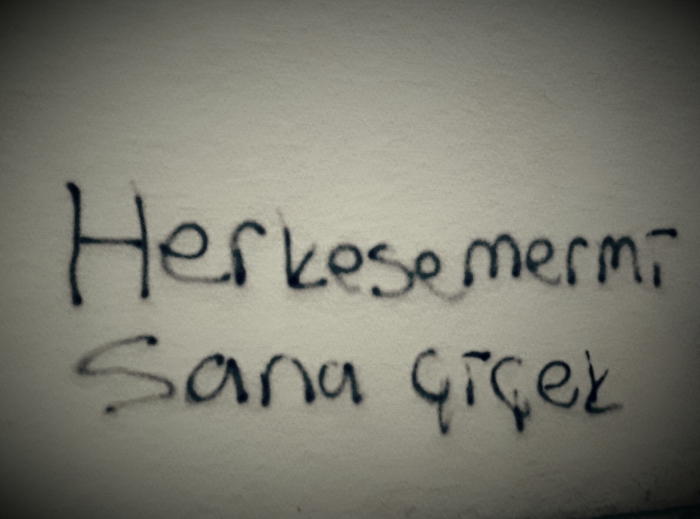 Herkese mermi
Sana çiçek